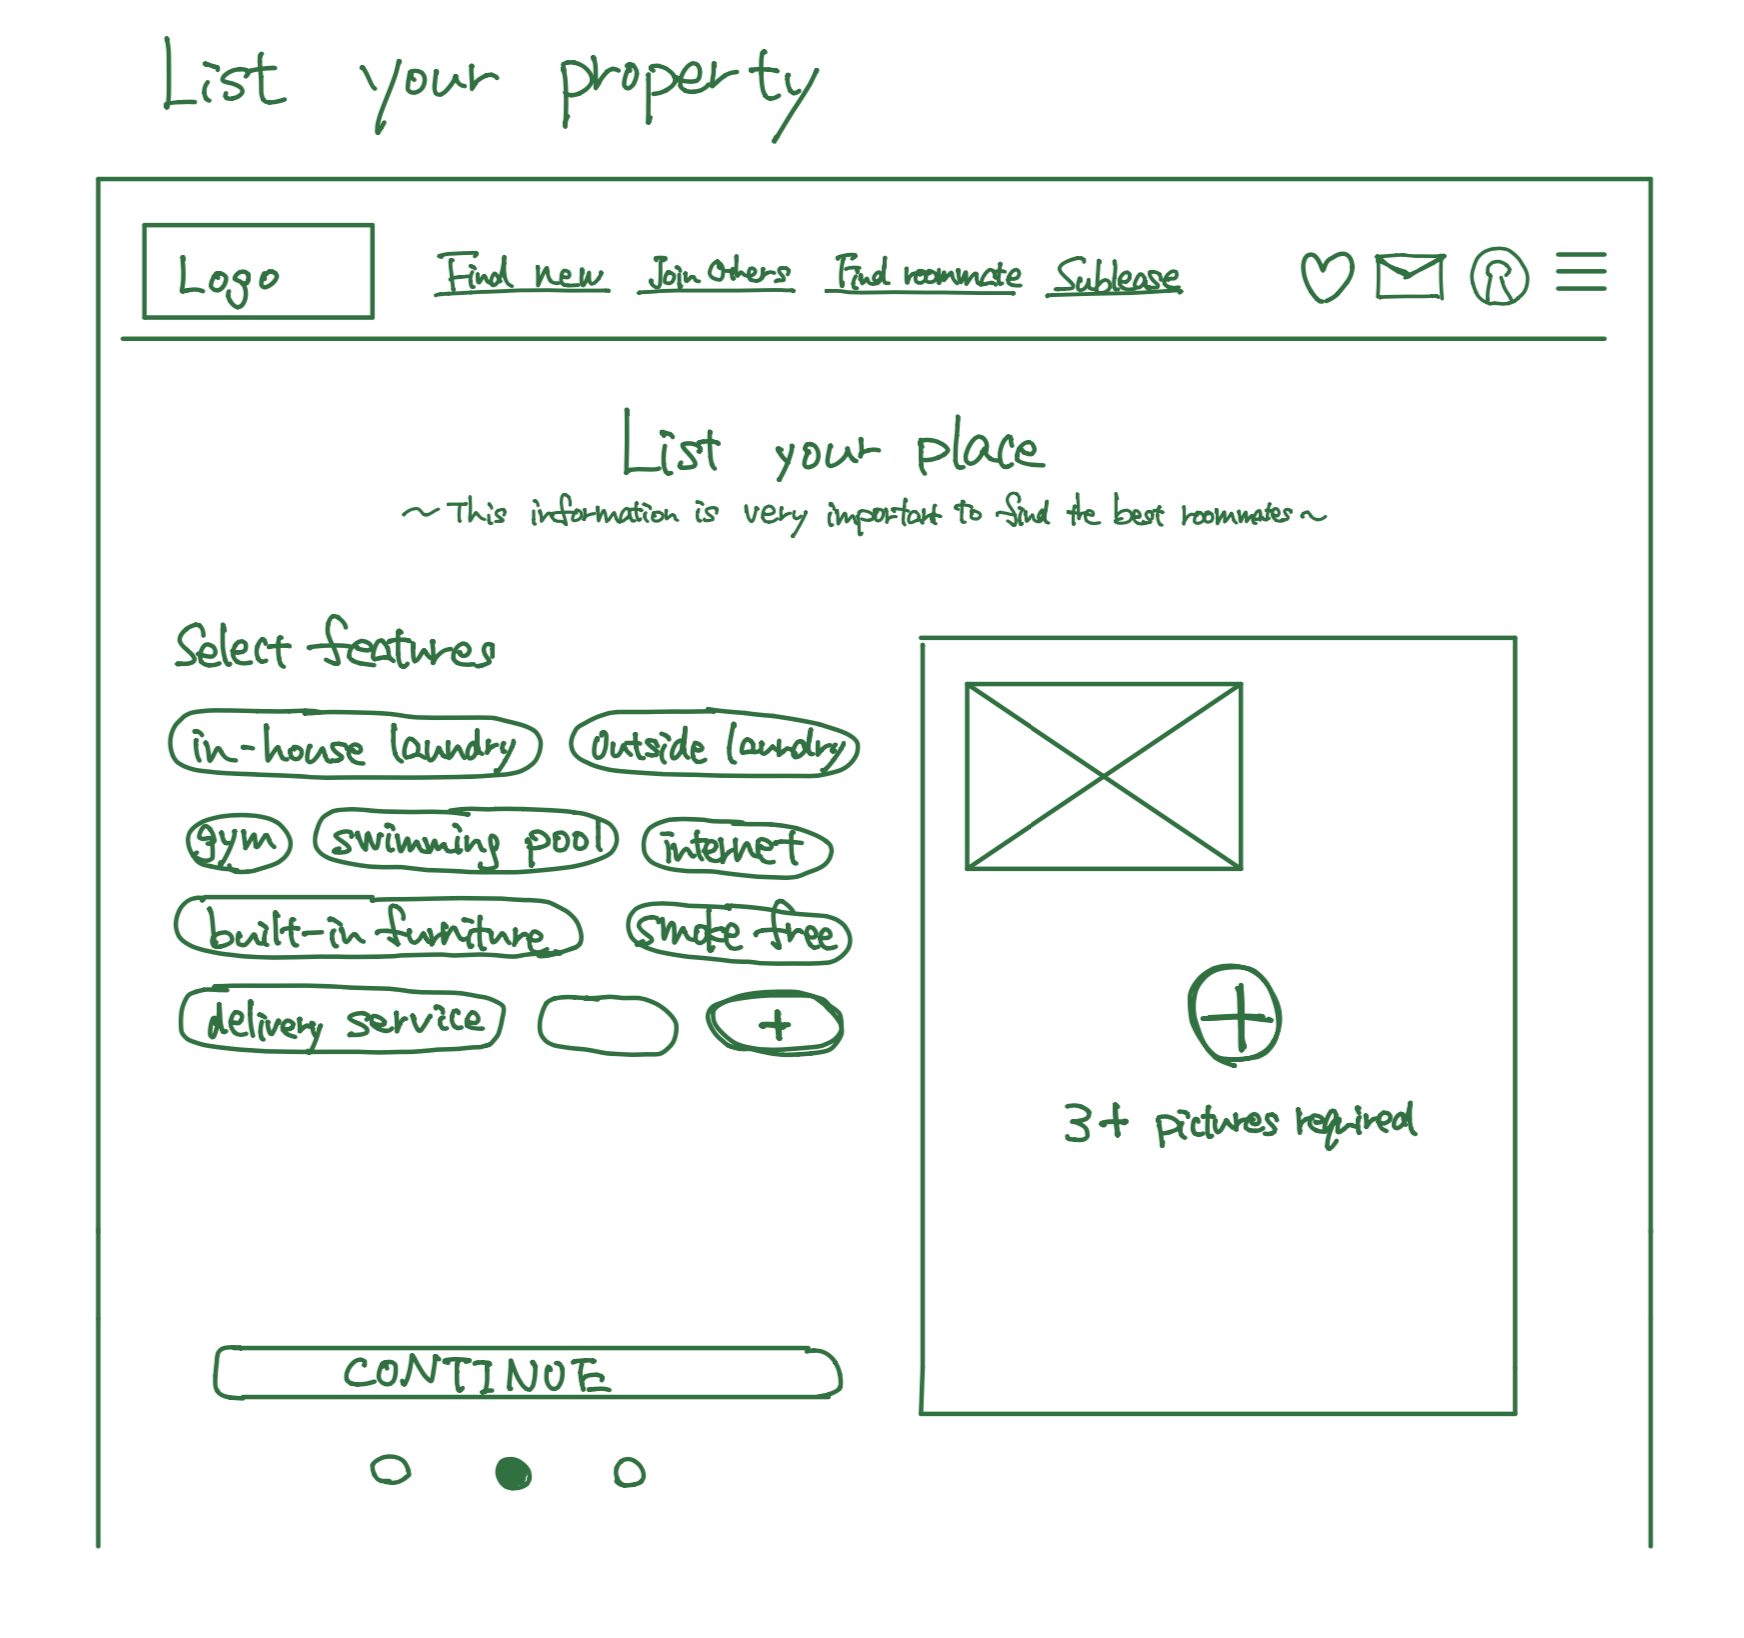 List your property
Logo Find new Join Others Find roommate Sublease
List your place
~This information is very important to find the best roommates~
Select features
in-house laundry outside laundry
gym swimming pool internet
built-in furniture smoke free
delivery service +
3+ pictures required
CONTINUE